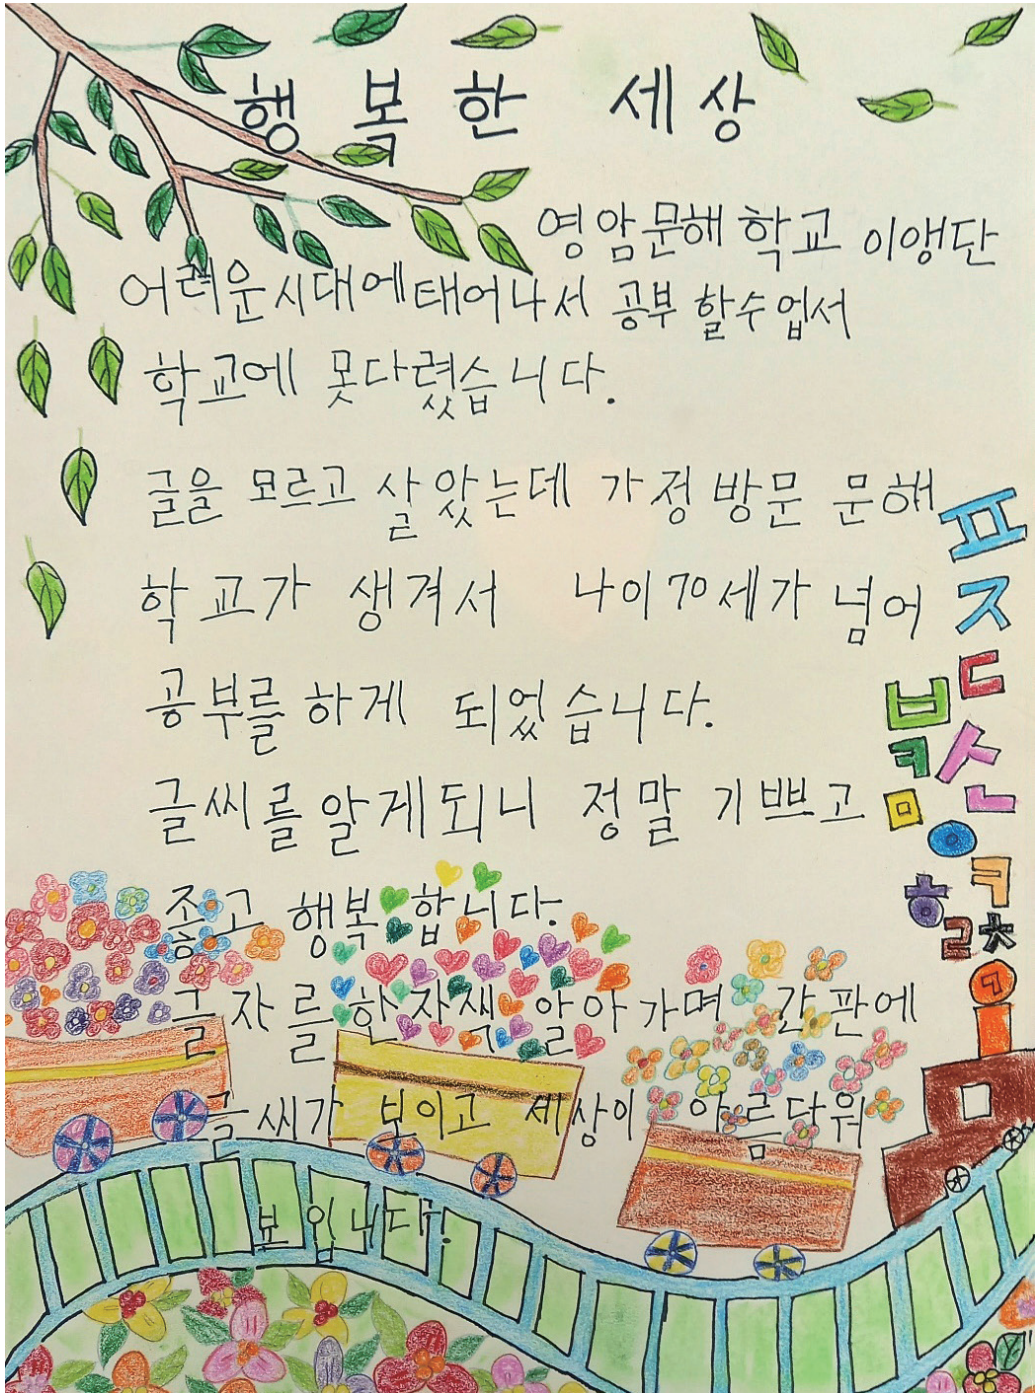 행복한 세상
영암문해학교 이앵단
어려운시대에태어나서 공부 할수 업서
학교에 못다렸습니다.
글을 모르고 살았는데 가정방문 문해
학교가 생겨서 나이70세가 넘어
공부를하게 되었습니다.
글씨를알게되니 정말 기쁘고
좋고 행복합니다.
글자를한자색 알아가며 간판에
글씨가 보이고 세상이 아름답워
보입니다!